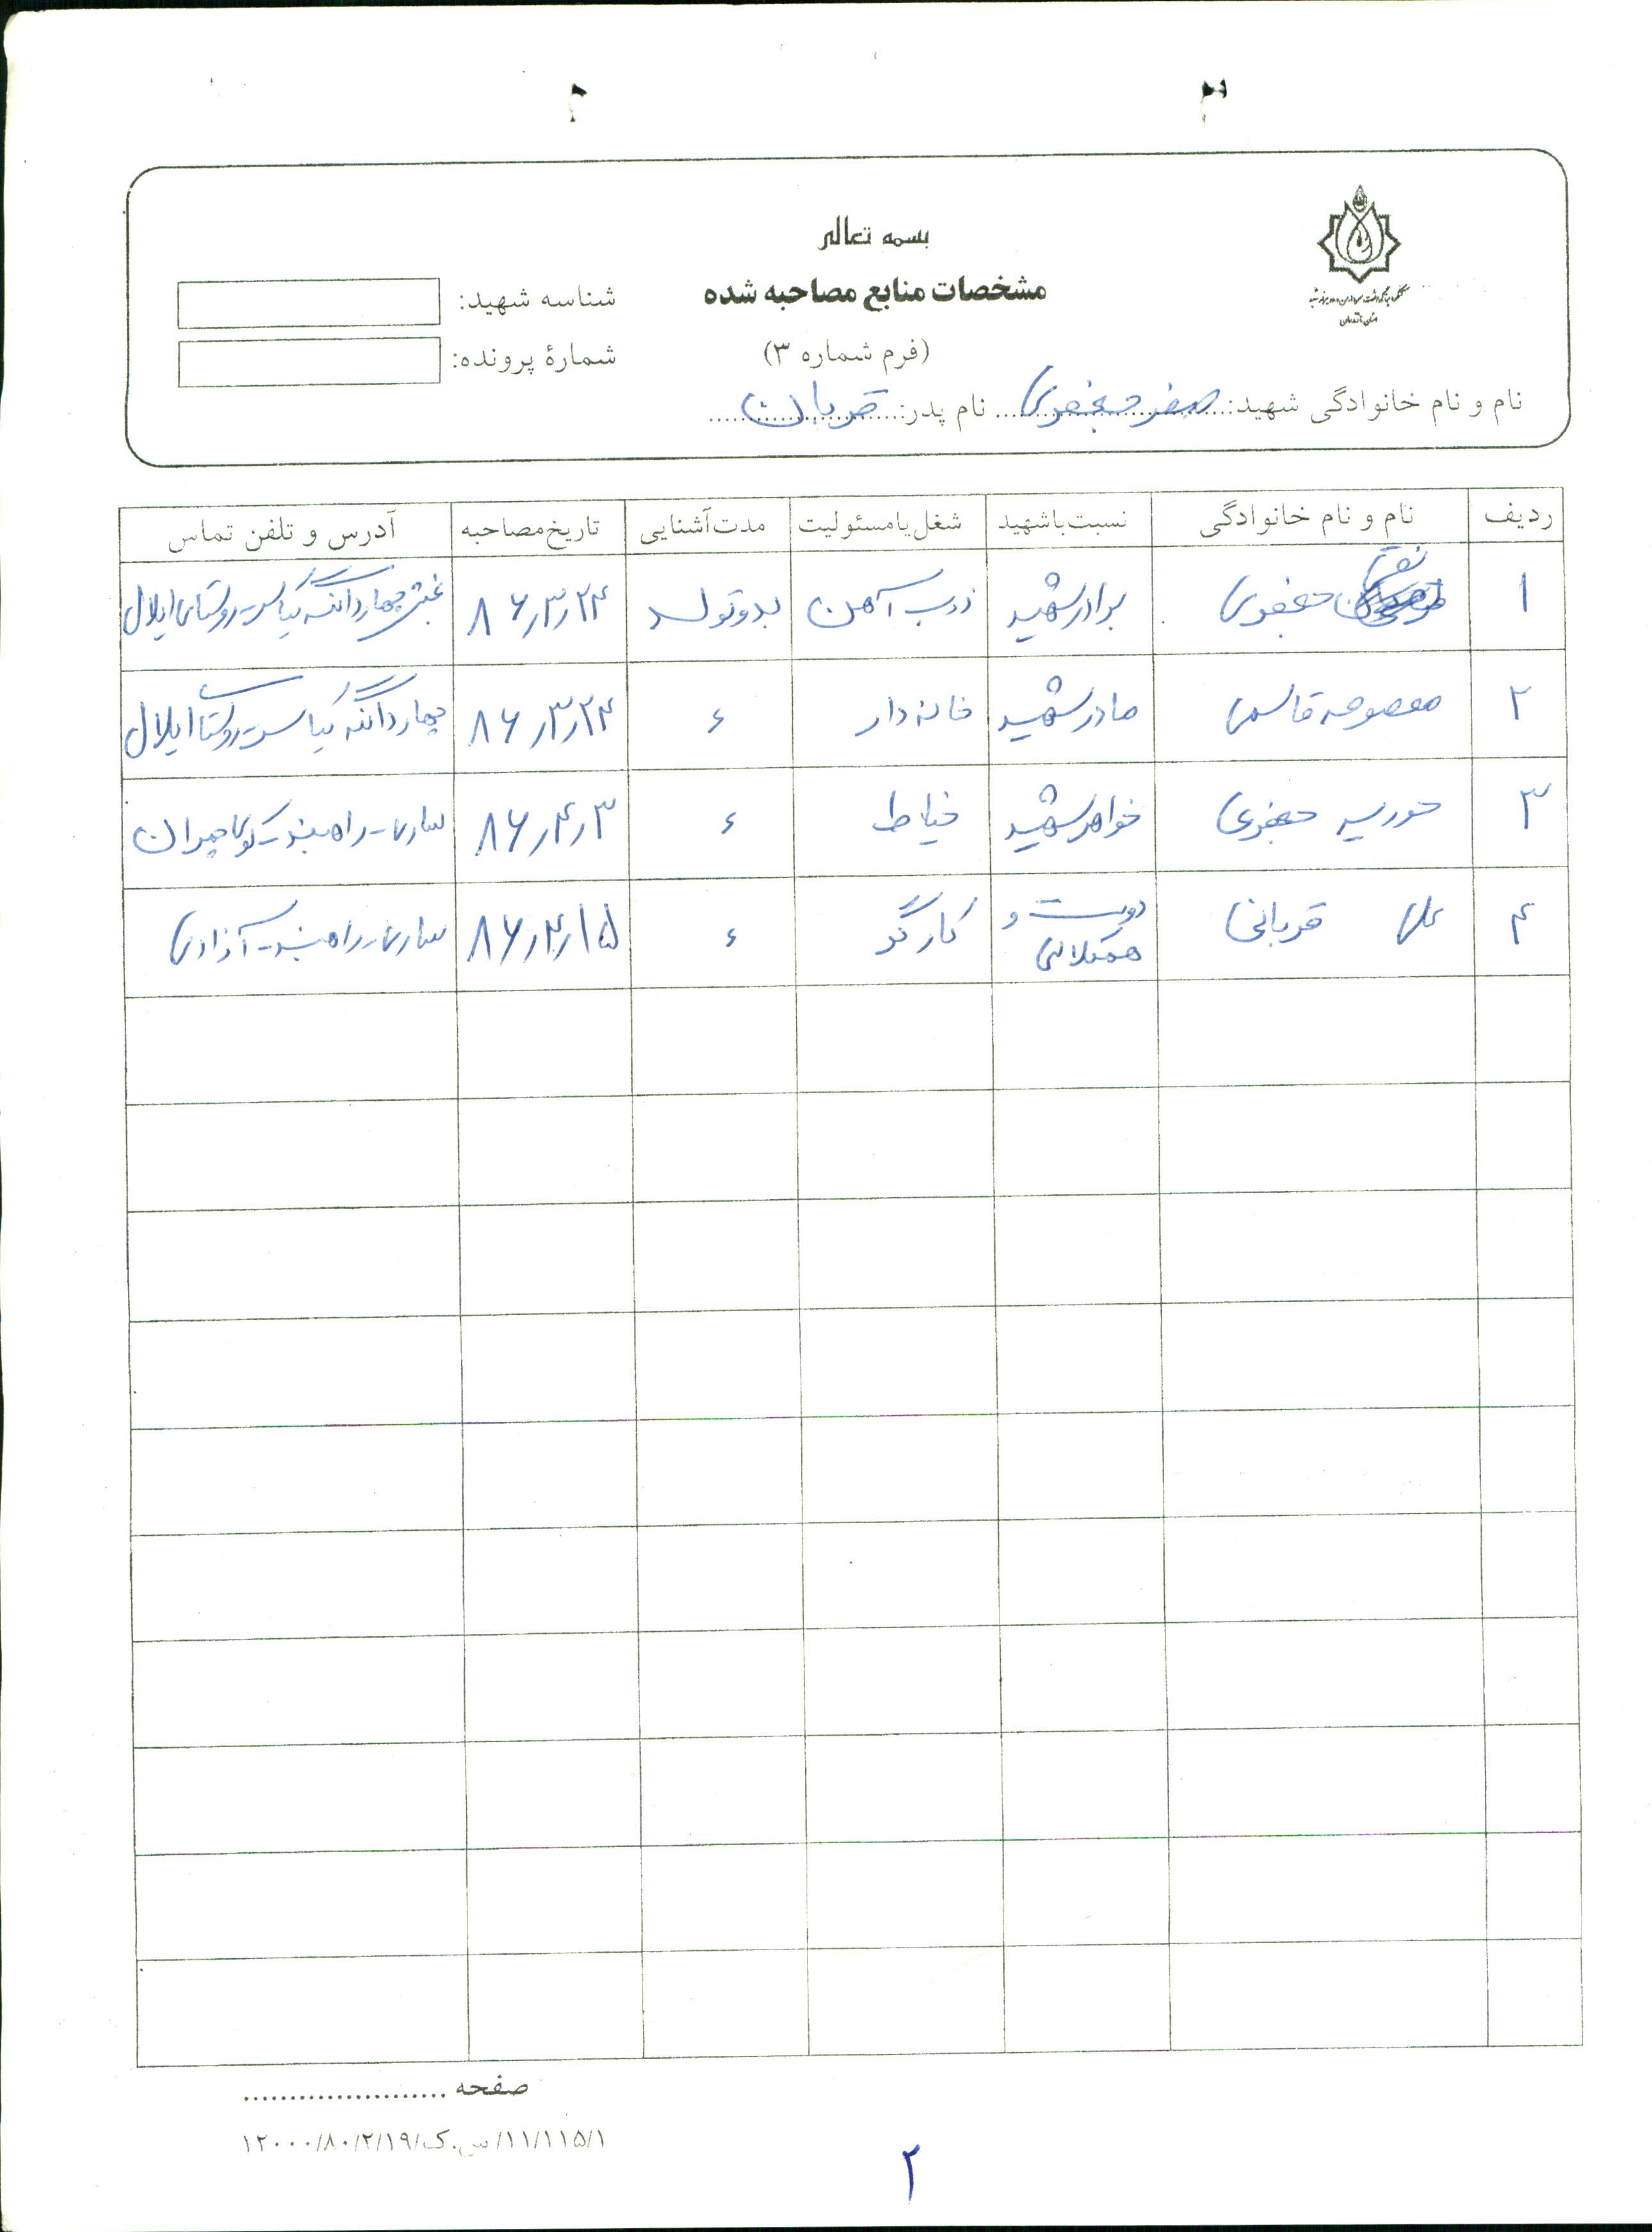 بسمه تعالی
مشخصات منابع مصاحبه شده
(فرم شماره ۳)
شناسه شهید:
شمارهٔ پرونده:
نام و نام خانوادگی شهید: صفر جعفری نام پدر: قربان
ردیف نام و نام خانوادگی نسبت باشهید شغل یا مسئولیت مدت آشنایی تاریخ مصاحبه آدرس و تلفن تماس
۱ نقی جعفری برادر شهید ذوب آهن بدو تولد ۸۶/۳/۲۴ بخش چهاردانگه کیاسر روستای ایلال
۲ معصومه قاسمی مادر شهید خانه دار ء ۸۶/۳/۲۴ چهاردانگه کیاسر روستا ایلال
۳ حوریه جعفری خواهر شهید خیاط ء ۸۶/۴/۳ ساری - راهبند - کوی چمران
۴ علی قربانی دوست و همکلاسی کارگر ء ۸۶/۴/۱۵ ساری - راهبند - آزادی
صفحه
۱۲۰۰۰/۸۰/۲/۱۹/س.ک/۱۱/۱۱۵/۱
۲